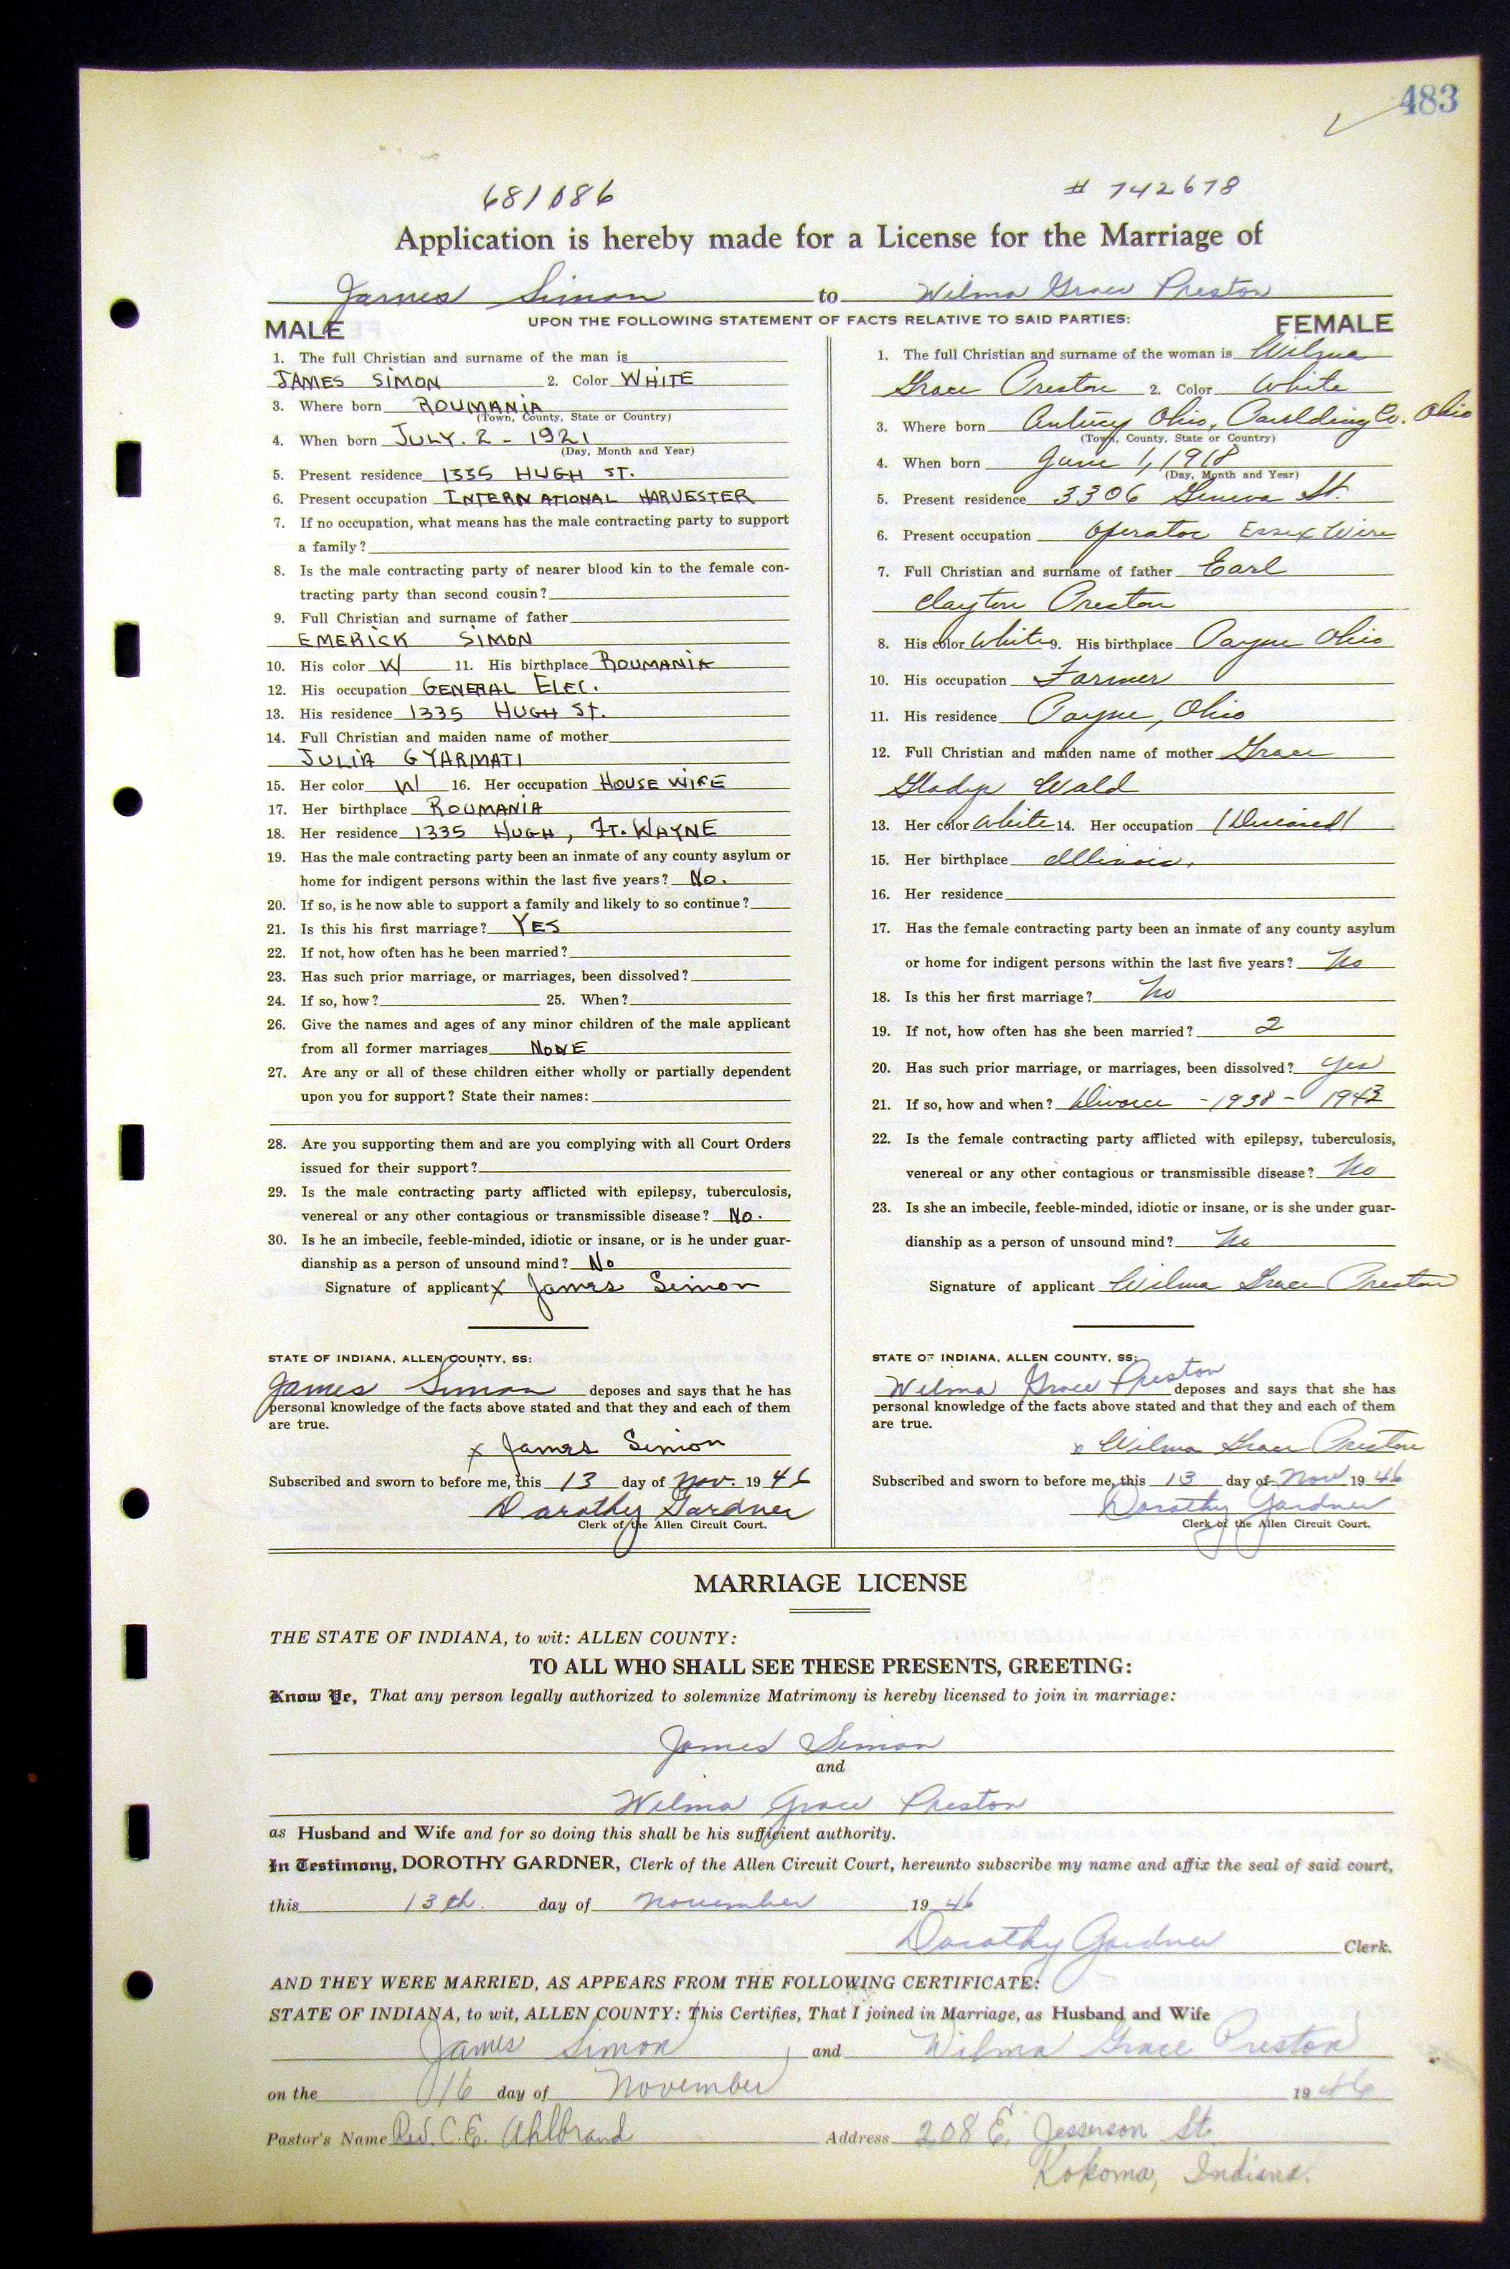 483
681086 # 742678
Application is hereby made for a License for the Marriage of
James Simon to Wilma Grace Preston
MALE UPON THE FOLLOWING STATEMENT OF FACTS RELATIVE TO SAID PARTIES: FEMALE
1. The full Christian and surname of the man is
JAMES SIMON 2. Color WHITE
3. Where born ROUMANIA
(Town, County, State or Country)
4. When born JULY. 2 - 1921
(Day, Month and Year)
5. Present residence 1335 HUGH ST.
6. Present occupation INTERNATIONAL HARVESTER
7. If no occupation, what means has the male contracting party to support
a family?
8. Is the male contracting party of nearer blood kin to the female con-
tracting party than second cousin?
9. Full Christian and surname of father
EMERICK SIMON
10. His color W 11. His birthplace ROUMANIA
12. His occupation GENERAL ELEC.
13. His residence 1335 HUGH St.
14. Full Christian and maiden name of mother
JULIA GYARMATI
15. Her color W 16. Her occupation HOUSE WIFE
17. Her birthplace ROUMANIA
18. Her residence 1335 HUGH, FT. WAYNE
19. Has the male contracting party been an inmate of any county asylum or
home for indigent persons within the last five years? No.
20. If so, is he now able to support a family and likely to so continue?
21. Is this his first marriage? YES
22. If not, how often has he been married?
23. Has such prior marriage, or marriages, been dissolved?
24. If so, how? 25. When?
26. Give the names and ages of any minor children of the male applicant
from all former marriages NONE
27. Are any or all of these children either wholly or partially dependent
upon you for support? State their names:
28. Are you supporting them and are you complying with all Court Orders
issued for their support?
29. Is the male contracting party afflicted with epilepsy, tuberculosis,
venereal or any other contagious or transmissible disease? No.
30. Is he an imbecile, feeble-minded, idiotic or insane, or is he under guar-
dianship as a person of unsound mind? No
Signature of applicant x James Simon
STATE OF INDIANA, ALLEN COUNTY, SS:
James Simon deposes and says that he has
personal knowledge of the facts above stated and that they and each of them
are true.
x James Simon
Subscribed and sworn to before me, this 13 day of Nov. 19 46
Dorothy Gardner
Clerk of the Allen Circuit Court.
1. The full Christian and surname of the woman is Wilma
Grace Preston 2. Color White
3. Where born Ohio, Paulding Co. Ohio
(Town, County, State or Country)
4. When born June 1, 1918
(Day, Month and Year)
5. Present residence 3306 Geneva St.
6. Present occupation Operator Essex Wire
7. Full Christian and surname of father Earl
Clayton Preston
8. His color White 9. His birthplace Payne Ohio
10. His occupation Farmer
11. His residence Payne, Ohio
12. Full Christian and maiden name of mother Grace
Gladys Wald
13. Her color White 14. Her occupation (Deceased)
15. Her birthplace Illinois,
16. Her residence
17. Has the female contracting party been an inmate of any county asylum
or home for indigent persons within the last five years? No
18. Is this her first marriage? No
19. If not, how often has she been married? 2
20. Has such prior marriage, or marriages, been dissolved? Yes
21. If so, how and when? Divorce - 1938 - 1943
22. Is the female contracting party afflicted with epilepsy, tuberculosis,
venereal or any other contagious or transmissible disease? No
23. Is she an imbecile, feeble-minded, idiotic or insane, or is she under guar-
dianship as a person of unsound mind? No
Signature of applicant Wilma Grace Preston
STATE OF INDIANA, ALLEN COUNTY, SS:
Wilma Grace Preston deposes and says that she has
personal knowledge of the facts above stated and that they and each of them
are true.
x Wilma Grace Preston
Subscribed and sworn to before me, this 13 day of Nov 19 46
Dorothy Gardner
Clerk of the Allen Circuit Court.
MARRIAGE LICENSE
THE STATE OF INDIANA, to wit: ALLEN COUNTY:
TO ALL WHO SHALL SEE THESE PRESENTS, GREETING:
Know Ye, That any person legally authorized to solemnize Matrimony is hereby licensed to join in marriage:
James Simon
and
Wilma Grace Preston
as Husband and Wife and for so doing this shall be his sufficient authority.
In Testimony, DOROTHY GARDNER, Clerk of the Allen Circuit Court, hereunto subscribe my name and affix the seal of said court,
this 13th day of November 19 46
Dorothy Gardner Clerk.
AND THEY WERE MARRIED, AS APPEARS FROM THE FOLLOWING CERTIFICATE:
STATE OF INDIANA, to wit, ALLEN COUNTY: This Certifies, That I joined in Marriage, as Husband and Wife
James Simon and Wilma Grace Preston
on the 16 day of November 19 46
Pastor's Name Rev. C. E. Ahlbrand Address 208 E. Jesserson St.
Kokomo, Indiana.